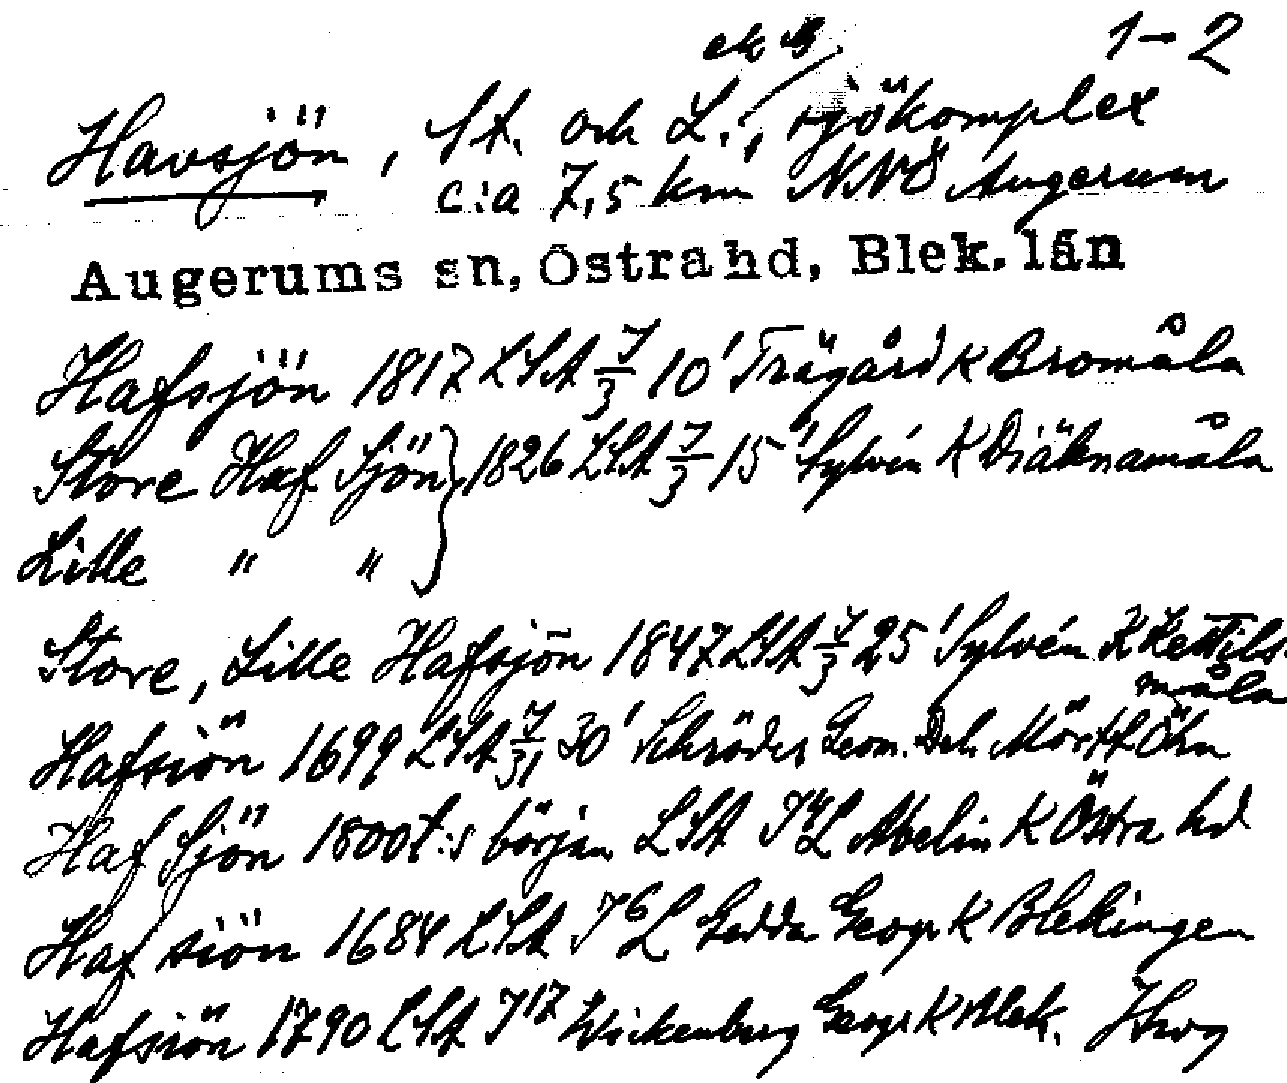 1-2
ek B
Havsjön, St. och L., sjökomplex
c:a 7,5 km NNÖ Augerum
Augerums sn, Östra hd, Blek. län
Hafsjön 1817 LSA 7/3 10' Trägård K Bromåla
Store Haf Sjön } 1826 LSA 7/3 15' Sylvén K Diäknamåla
Lille " "
Store, Lille Hafsjön 1847 LSA 7/3 25' Sylvén K Kettils-
måla
Hafsiön 1699 LSA 7/31 30' Schröder, Geom. Del. Mörtt Öhn
Haf Sjön 1800t:s början LSA I 4 L Abelin K Östra hd
Haf siön 1684 LSA I 6 L Gedda Geogr K Blekingen
Hafsiön 1790 LSA I 17 Wickenberg Geogr K Blek.